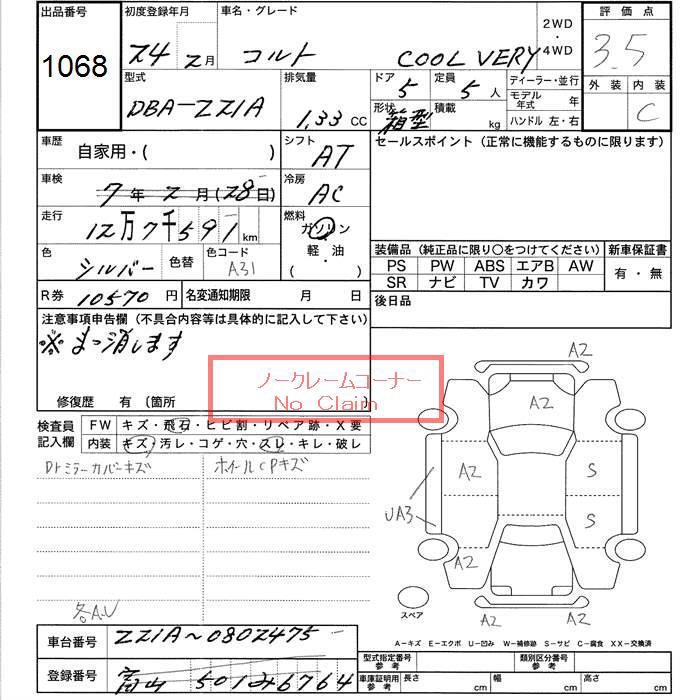 出品番号 初度登録年月 車名・グレード 2WD ・ 4WD 評価点
1068 24 2月 コルト COOL VERY 3.5
型式 排気量 ドア 定員 ディーラー・並行 外装 内装
DBA-Z21A 1.33 CC 5 5人 モデル年式 年 C
形状 箱型 積載 kg ハンドル 左・右
車歴 自家用・( ) シフト AT セールスポイント (正常に機能するものに限ります)
車検 7年 2月(28日) 冷房 AC
走行 12万7千591km 燃料 ガソリン
軽・油
( )
色 シルバー 色替 色コード A31
装備品 (純正品に限り○をつけてください) 新車保証書
PS PW ABS エアB AW 有・無
SR ナビ TV カワ
R券 10570円 名変通知期限 月 日 後日品
注意事項申告欄 (不具合内容等は具体的に記入して下さい)
※まっ消します
ノークレームコーナー
No Claim
修復歴 有 (箇所 )
検査員記入欄 FW キズ・飛石・ヒビ割・リペア跡・X要
内装 キズ・汚レ・コゲ・穴・スレ・キレ・破レ
Drミラーカバーキズ ホイールCPキズ
A2
A2
A2 S
UA3 S
A2
A2 A2
スペア
各A.U
A-キズ E-エクボ U-凹み W-補修跡 S-サビ C-腐食 XX-交換済
車台番号 Z21A~0802475
型式指定番号 参考 類別区分番号 参考
登録番号 富山 501 み 6764
車庫証明用 参考 長さ cm 幅 cm 高さ cm